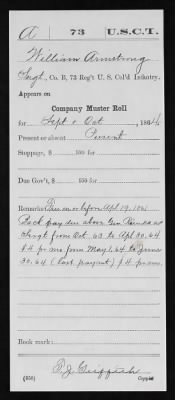 A 73 U.S.C.T.
William Armstrong
Sergt., Co. B, 73 Reg't U. S. Col'd Infantry.
Appears on
Company Muster Roll
for Sept & Oct, 1864
Present or absent Present
Stoppage, $ 100 for
Due Gov't, $ 100 for
Remarks: Due on or before Apl 19, 1861
Back pay due above
Sergt from Oct 63 to Apl 30, 64
$4 pr mo from May 1, 64 to June
30, 64 (last payment) $4 pr mo.
Book mark:
(858) Copyist